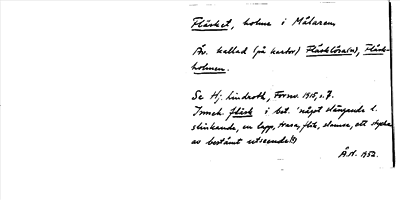 Fläsket, holme i Mälaren
Äv. kallad (på kartor) Flässlösa(n), Fläsk-
holmen.
Se Hj. Lindroth, Fornv. 1915, s. 7.
Inneh. fläsk i bet. 'något slängande l.
slinkande, en lapp, trasa, flik, slamsa, ett stycke
av bestämt utseende'(?)
Å.N. 1952.